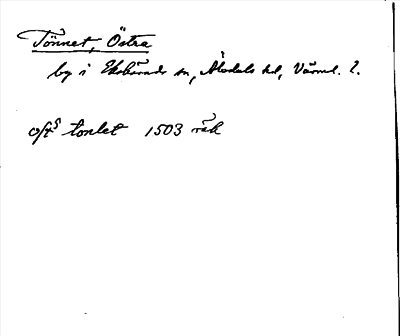 Tönnet, Östra
by i Ekshärads sn, Älvdals hd, Värml. l.
tonlet 1503 räk